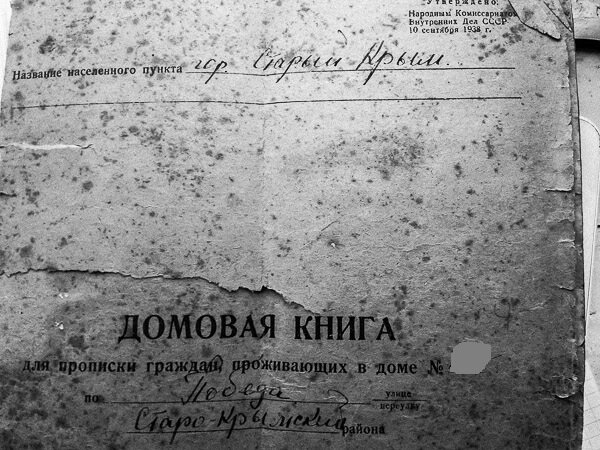 Утверждено:
Народным Комиссариатом
Внутренних Дел СССР
10 сентября 1938 г.
Название населенного пункта гор. Старый Крым
ДОМОВАЯ КНИГА
для прописки граждан, проживающих в доме №
по Победа улице
переулку
Старо-Крымский района